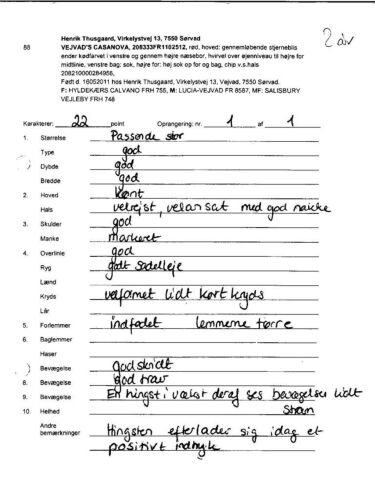 Henrik Thusgaard, Virkelystvej 13, 7550 Sørvad.
2 år
88 VEJVAD'S CASANOVA, 208333FR1102512, rød, hoved: gennemløbende stjerneblis
ender kødfarvet i venstre og gennem højre næsebor, hvirvel over øjenniveau til højre for
midtlinie, venstre bag: sok, højre for: høj sok op for og bag, chip v.s.hals
208210000284956,
Født d. 16052011 hos Henrik Thusgaard, Virkelystvej 13, Vejvad, 7550 Sørvad.
F: HYLDEKÆRS CALVANO FRH 755, M: LUCIA-VEJVAD FR 8587, MF: SALISBURY
VEJLEBY FRH 748
Karakterer: 22 point Oprangering: nr. 1 af 1
1. Størrelse Passende stor
Type god
Dybde god
Bredde god
2. Hoved kønt
Hals velrejst, velansat med god nakke
3. Skulder god
Manke markeret
4. Overlinie god
Ryg godt sadelleje
Lænd
Kryds velformet lidt kort kryds
Lår
5. Forlemmer indfødet lemmerne tørre
6. Baglemmer
Haser
Bevægelse god skridt
8. Bevægelse god trav
9. Bevægelse En hingst i vækst deraf ses bevægelser lidt
10. Helhed stram
Andre
bemærkninger Hingsten efterlader sig idag et
positivt indtryk